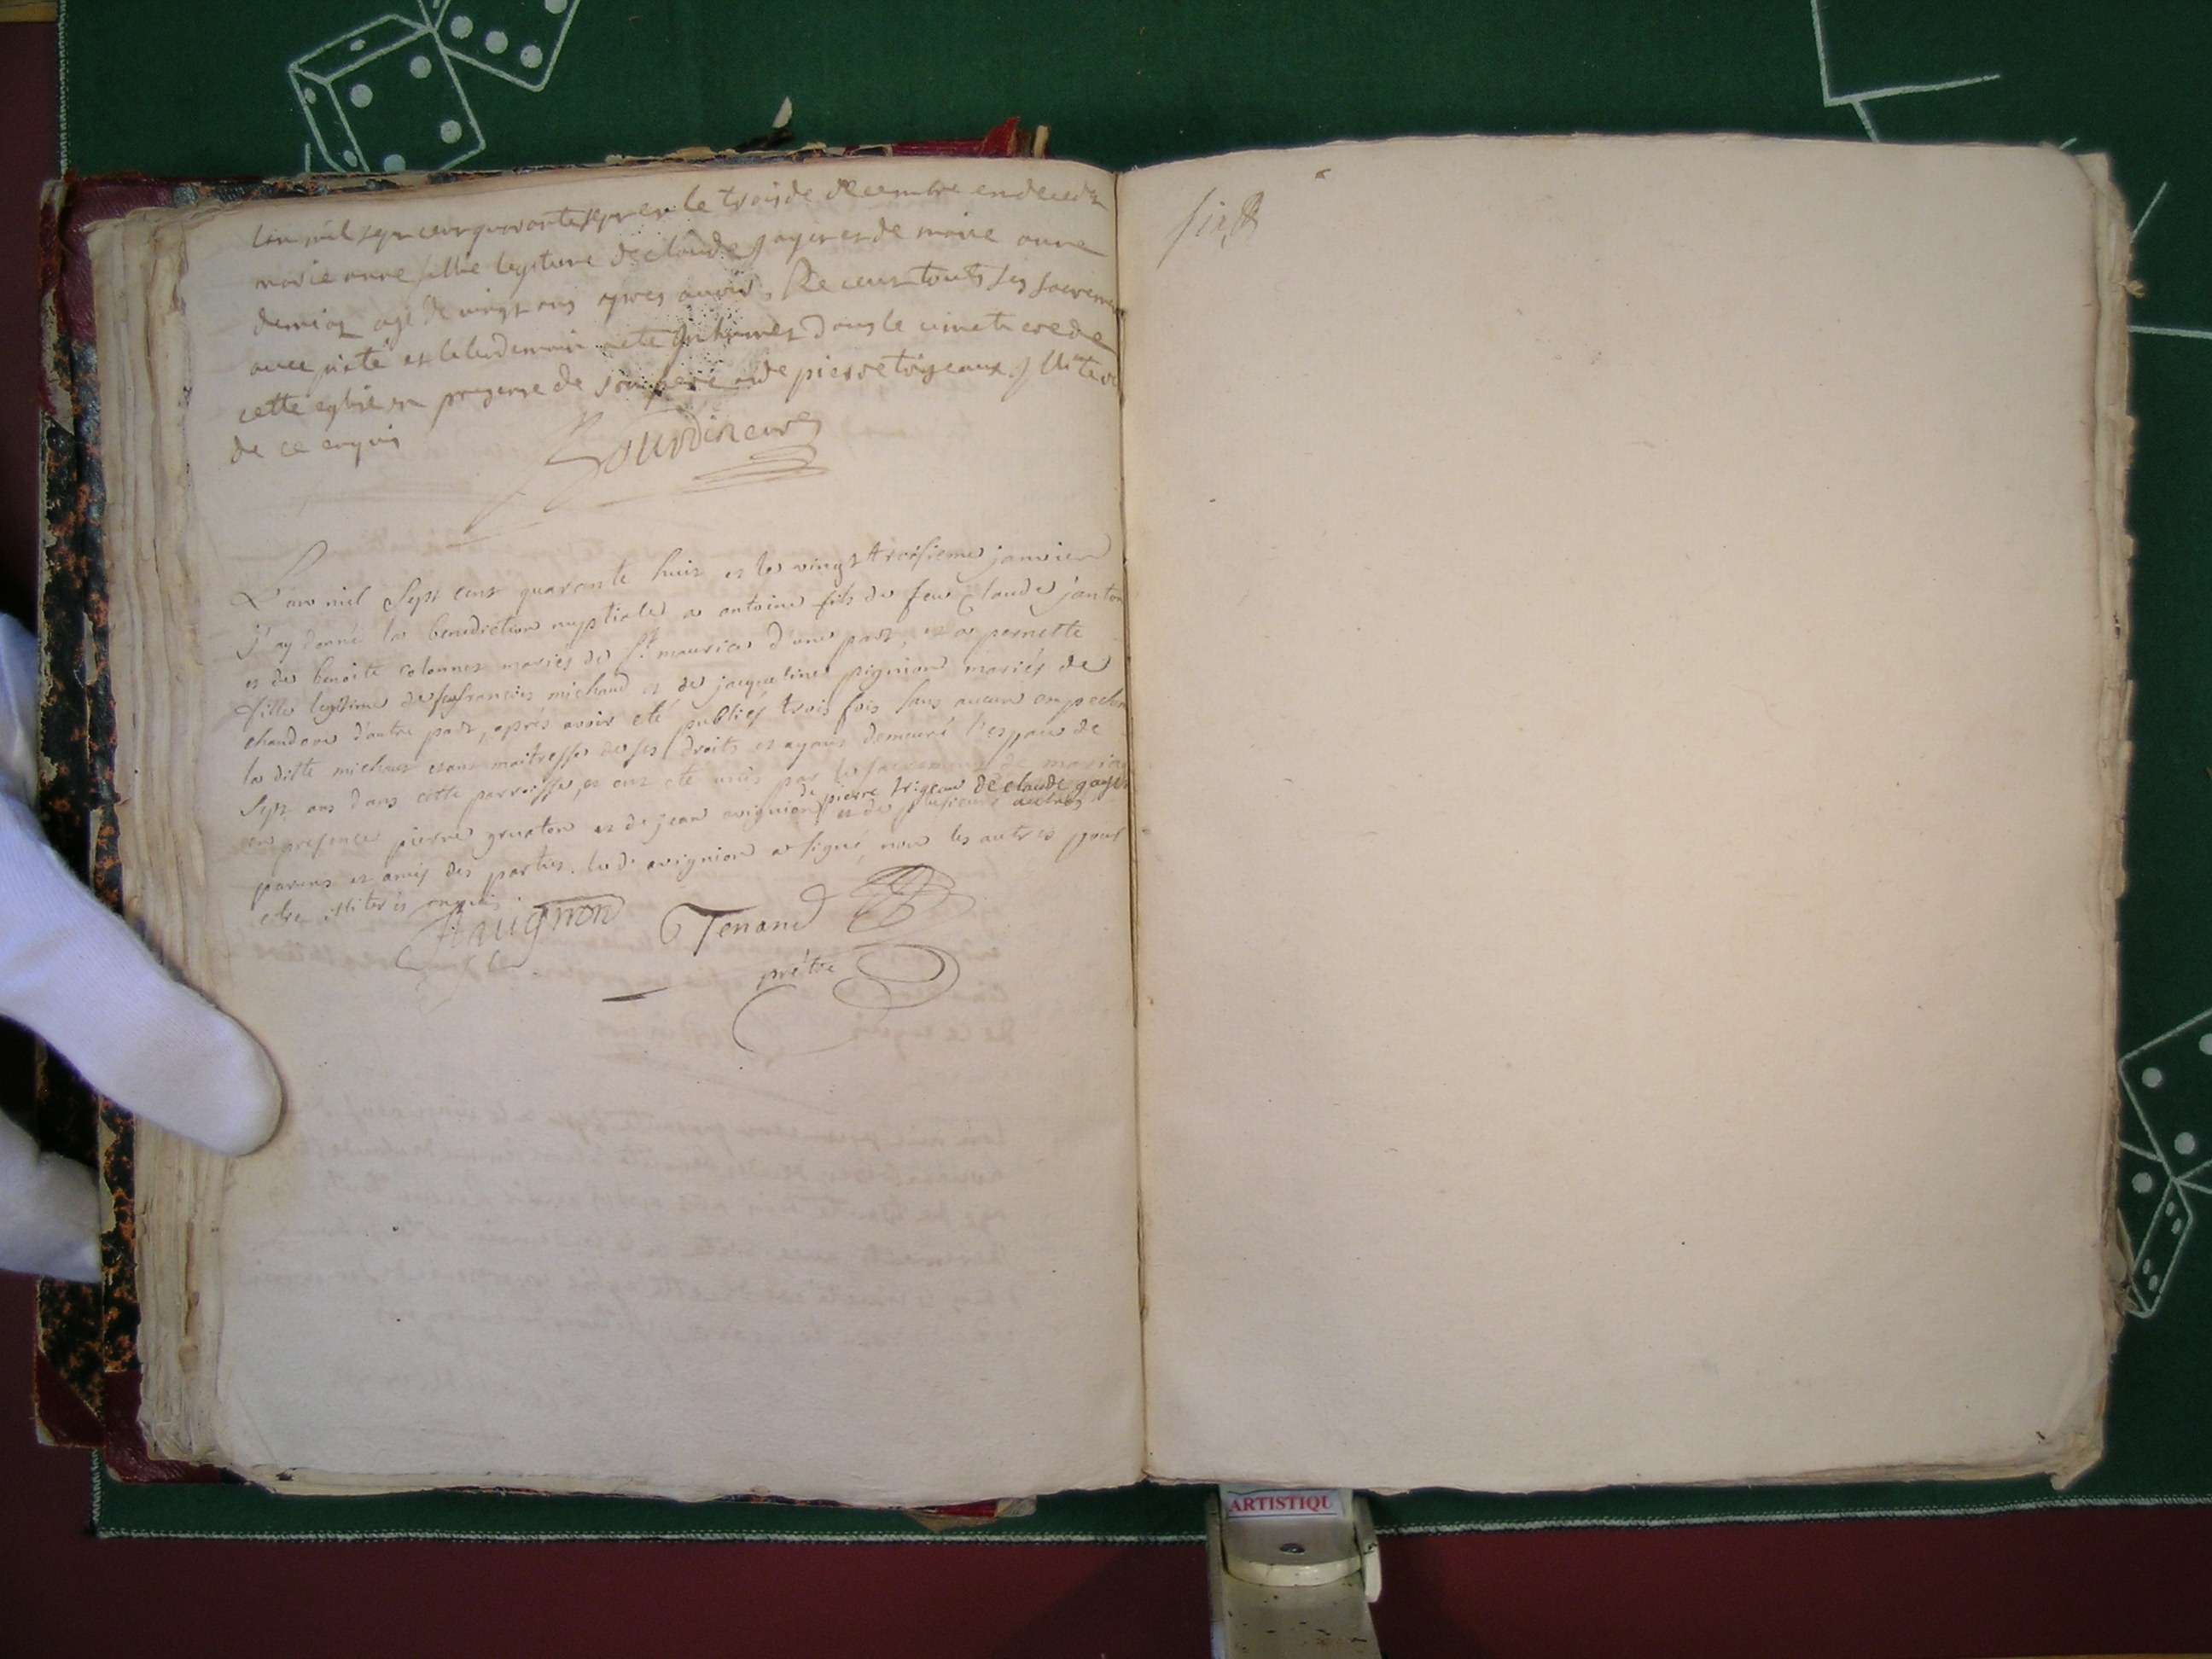 Lan mil sept cens quarante sept et le trois de decembre en decedez
marie anne fillie legitime de claude gayet et de marie anne
demiot agé de vingt ans apres avoir Receus touts ses sacremen
avec pieté et le lendemain a eté Inhumez dans le cimetiere de
cette eglise en presence de son pere et de pierre trigeaux Illitere
de ce enquis
L'an mil Sept cens quarante huit et le vingt troisieme janvier
j'ay donné la benediction nuptiale a antoine fils de feu Claude janton
et de benoite colonnet mariés de St maurice d'une part, et a pernette
fille legitime de feu francois michaud et de jacqueline pignion mariés de
chandon d'autre part, aprés avoir eté publiés trois fois sans aucun empechem
la ditte michaut etant maitresse de ses droits et ayant demeuré l'espace de
Sept ans dans cette parroisse, et ont eté unis par le sacrement de mariag
en presence pierre gruston et de jean avignion de pierre trigeau de claude gayet et de plusieurs autres
parens et amis des parties. le dt avignion a signé non les autres pour
etre illiterés enquis.
Tenand
prêtre
ARTISTIQU